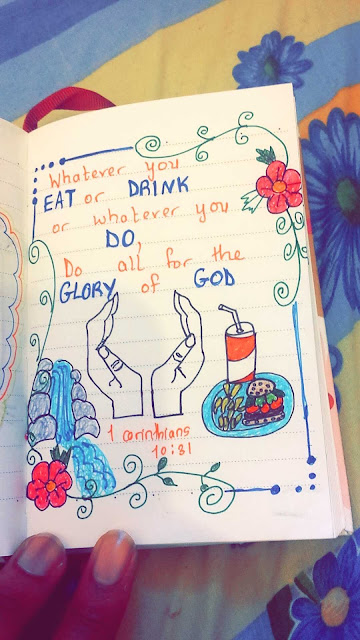 Whatever you
EAT or DRINK
or whatever you
DO,
Do all for the
GLORY of GOD
1 corinthians
10:31